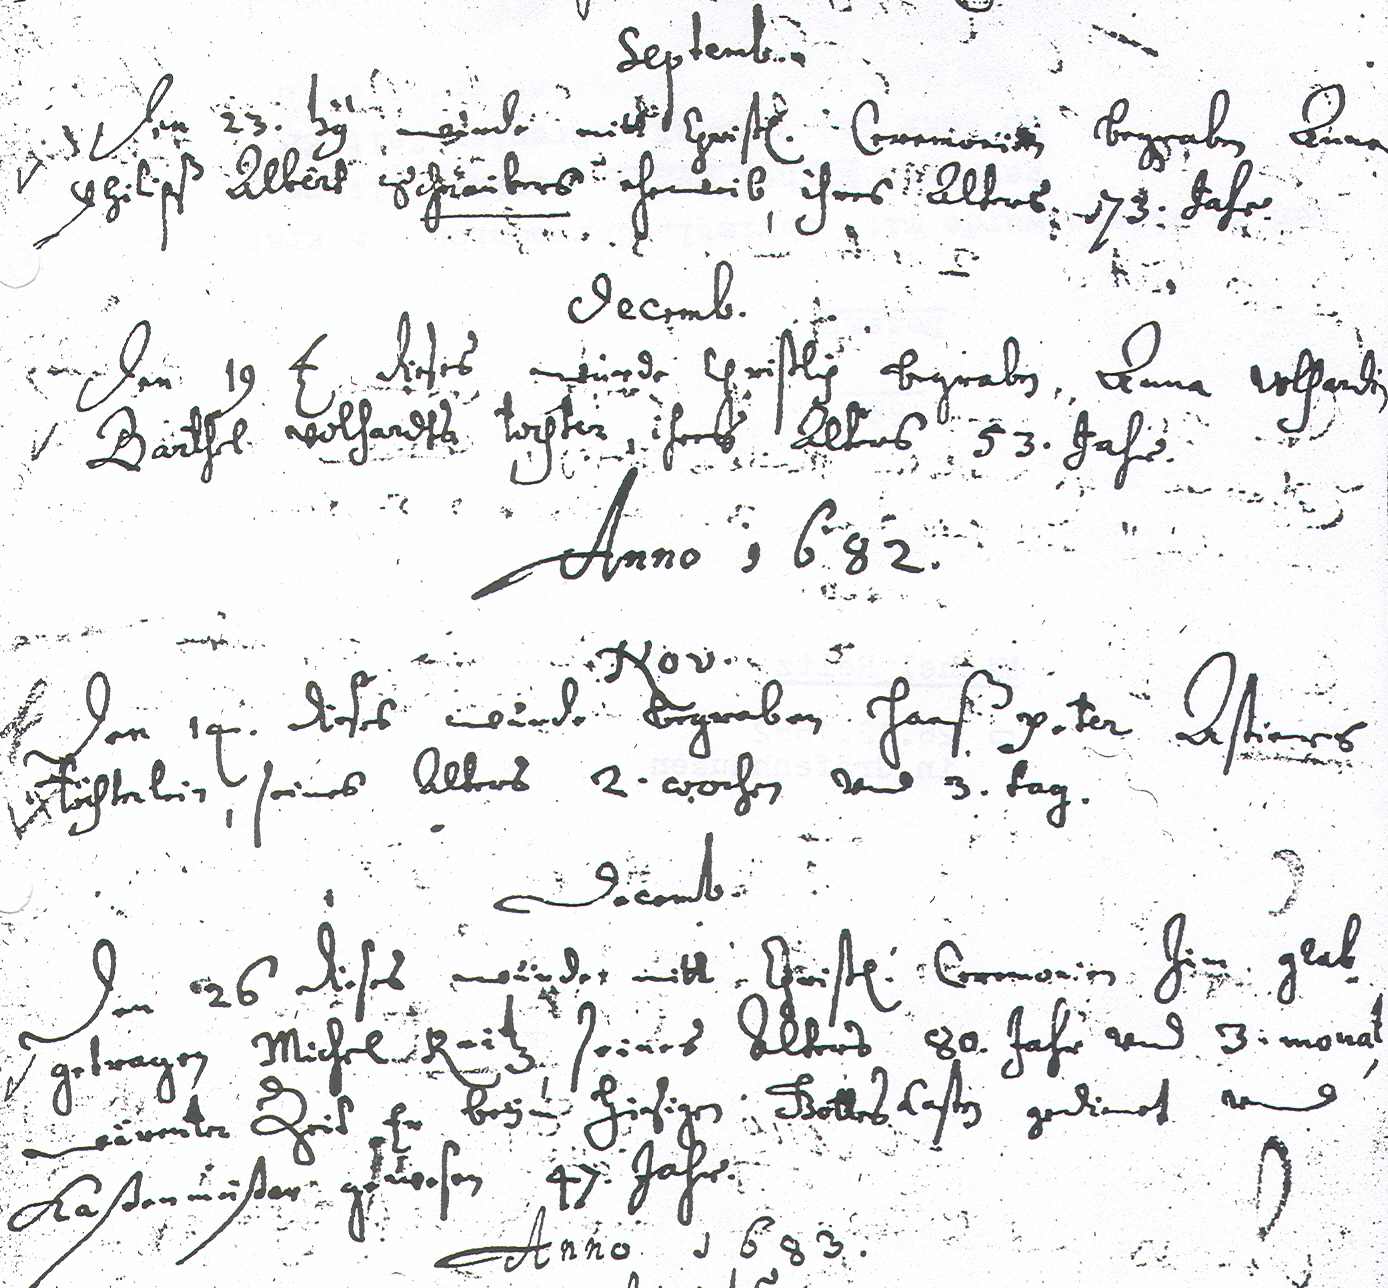 Septemb.
Den 23. wurde mitt Christl. Ceremonien begraben Anna
Philipß Albert Schreibers eheweib, ihres Alters 73. Jahr.
Decemb.
Den 19 dieses wurde Christlich begraben, Anna Volhardin
Barthel Volhardts tochter, ihres Alters 53. Jahr.
Anno 1682.
Nov.
Den 14. dieses wurde begraben Hanß Peter
Töchterlein, seines Alters 2. wochen vnd 3. tag.
Decemb.
Den 26 dieses wurde mitt Christl. Ceremonien Zum grab
getragen Michel Reitz, seines Alters 80. Jahr vnd 3. monat,
Zeit Er beÿm hiesigen Gottes Kasten gedienet vnd
Kastenmeister gewesen 47. Jahr.
Anno 1683.